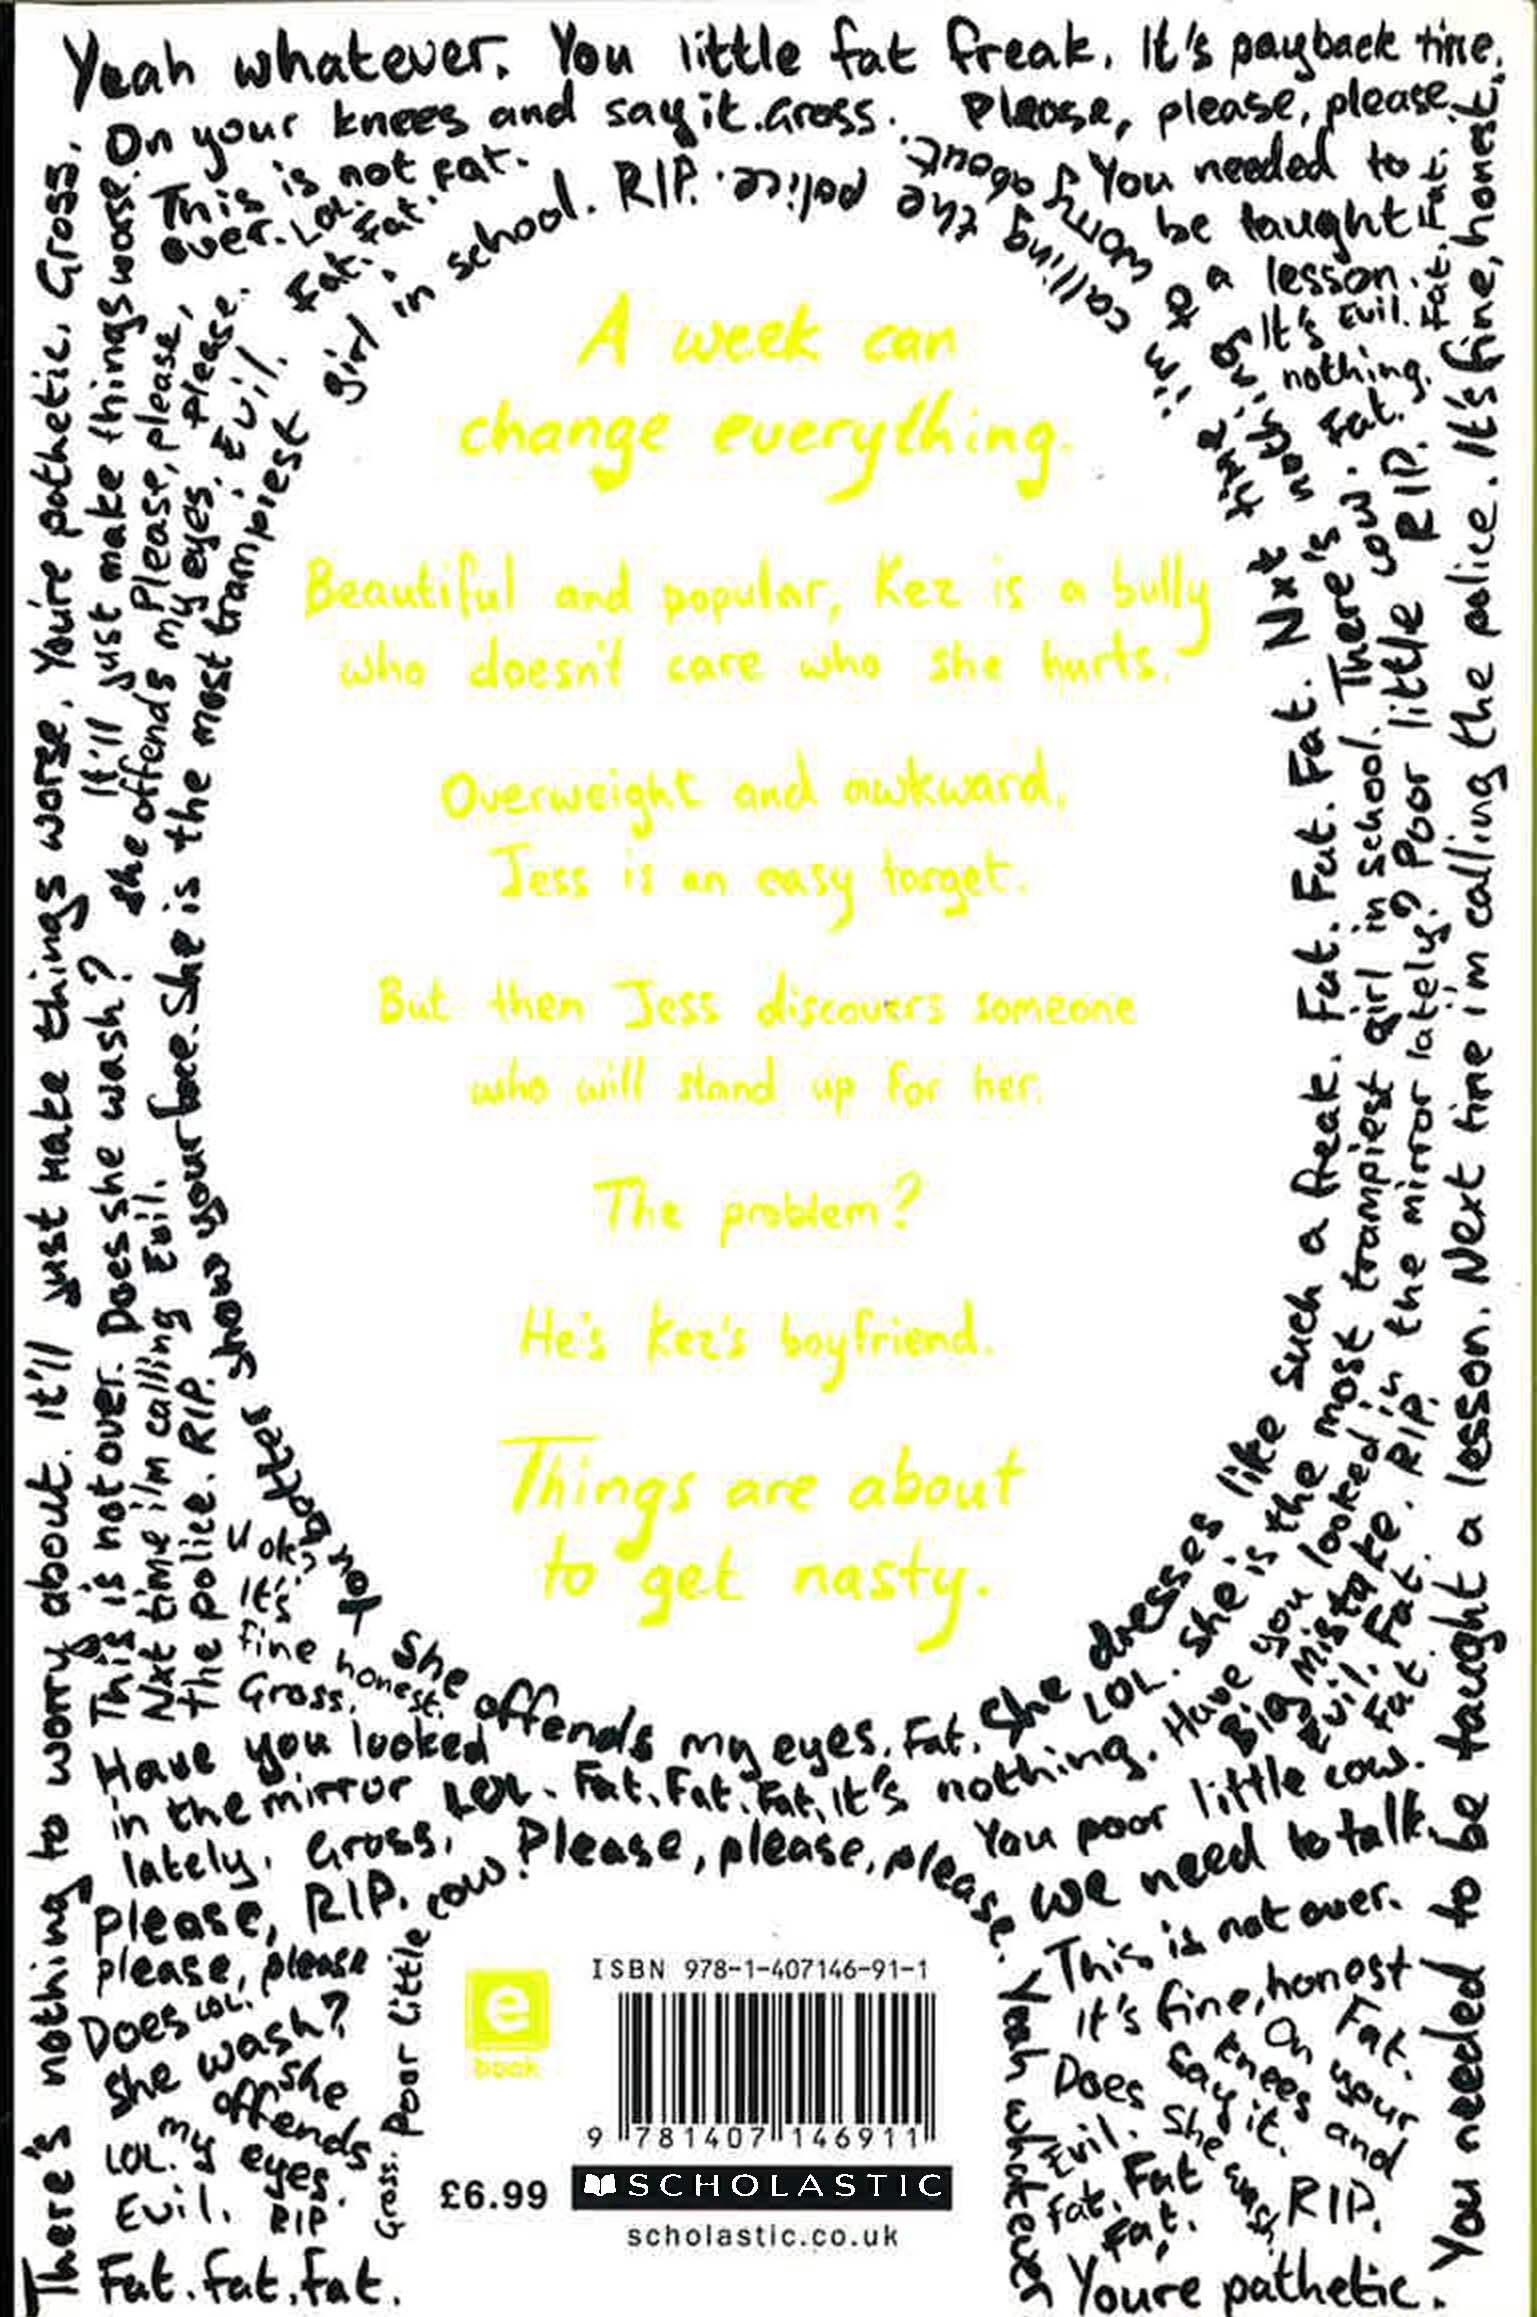 Yeah whatever. You little fat freak. It's payback time.
On your knees and say it. Gross. Please, please, please.
This is not fat.
over. LOL. Fat.
Fat.
You needed to
be taught
a lesson.
It's Evil.
nothing.
Fat.
girl in school. RIP.
i'm calling the police.
Nxt time
There's nothing to worry about.
A week can
change everything.
Beautiful and popular, Kez is a bully
who doesn't care who she hurts.
Overweight and awkward,
Jess is an easy target.
But then Jess discovers someone
who will stand up for her.
The problem?
He's Kez's boyfriend.
Things are about
to get nasty.
There's nothing to worry about. It'll just make things worse. You're pathetic. Gross.
This is not over. Does she wash? It'll just make things worse.
Nxt time i'm calling Evil. She offends my eyes. Please, please, please.
the police. RIP. show your face. She is the most trampiest
Evil.
not bottes
U ok?
It's
fine honest.
Gross.
Fat. Fat. Fat. Fat. Fat.
She dresses like such a freak.
She is the most trampiest girl in school. There's nothing to worry about.
Have you looked in the mirror lately? Poor little cow.
Big Mistake. RIP. RIP.
Evil. Fat.
Fat.
You needed to be taught a lesson. Next time i'm calling the police. It's fine, honest.
She offends my eyes. Fat.
LOL.
Have you looked
in the mirror
lately.
LOL. Fat. Fat. Fat. It's nothing.
Gross.
Please, please, please.
You poor little cow.
please, RIP.
please, please
Does LOL.
she wash?
she
offends
my eyes.
LOL.
Evil. RIP.
Fat. fat. fat.
Gross. Poor little cow.
We need to talk.
This is not over.
It's fine, honest
Fat.
On your
knees and
say it.
Yeah whatever
Does she wash.
Evil.
Fat. Fat
Fat.
RIP.
Youre pathetic.
e
book
ISBN 978-1-407146-91-1
9 781407 146911
£6.99
SCHOLASTIC
scholastic.co.uk